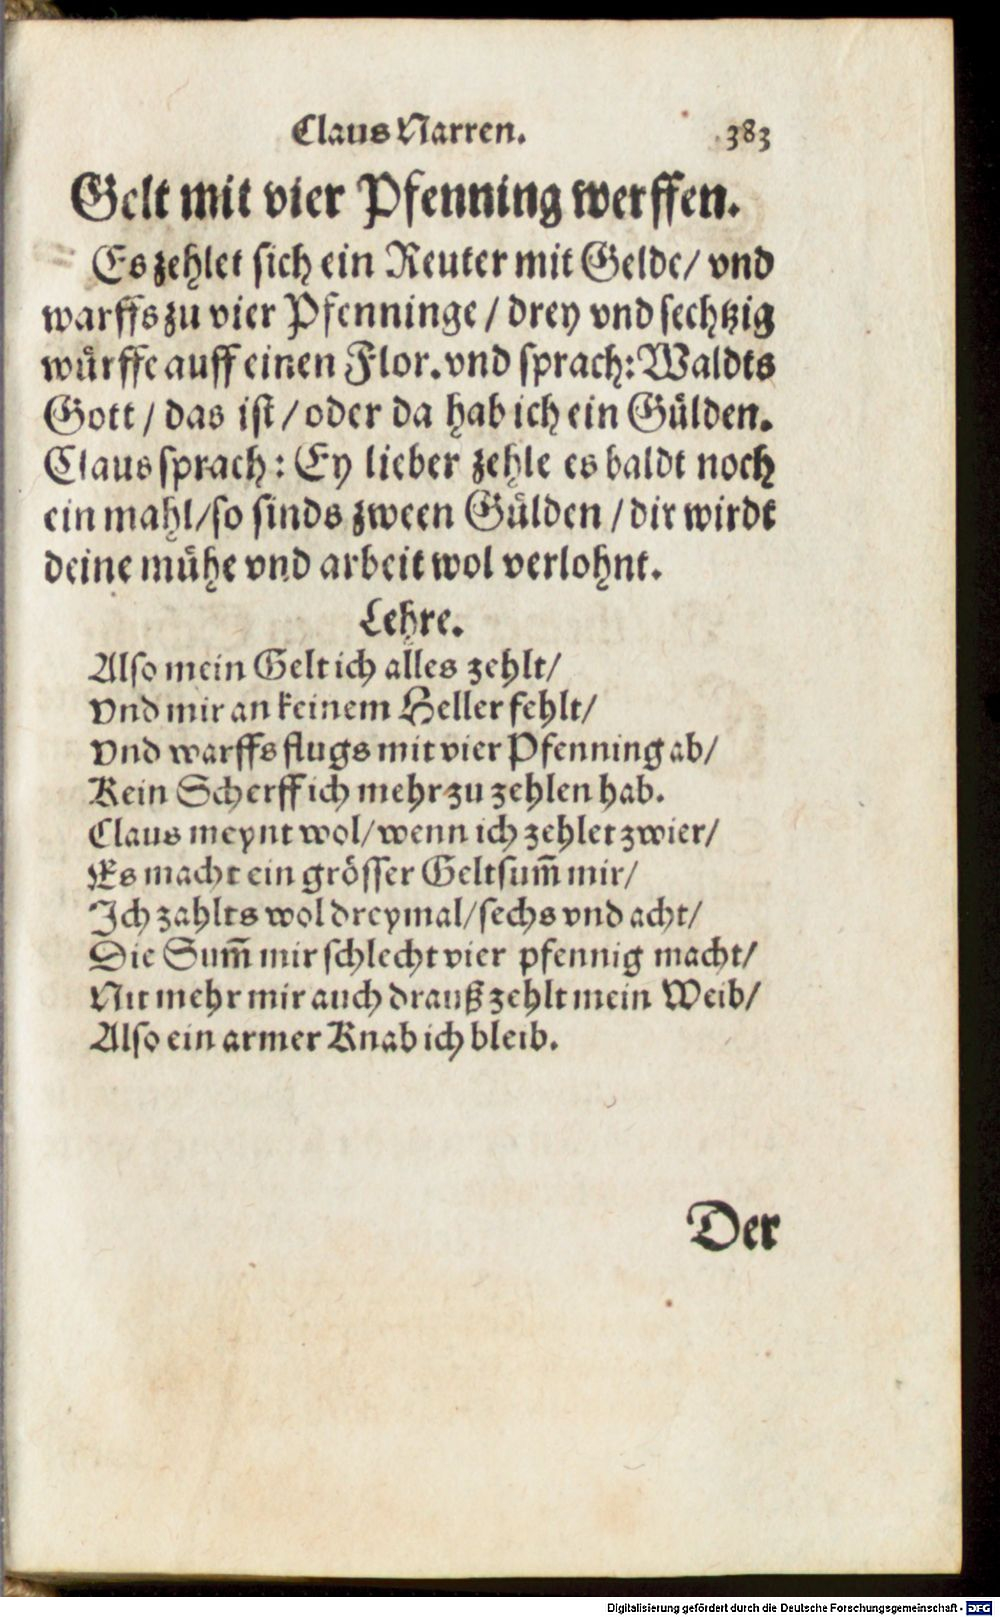 Claus Narren. 383
Gelt mit vier Pfenning werffen.
Es zehlet sich ein Reuter mit Gelde/ vnd
warffs zu vier Pfenninge / drey vnd sechtzig
wuͤrffe auff einen Flor. vnd sprach: Waldts
Gott / das ist / oder da hab ich ein Guͤlden.
Claus sprach: Ey lieber zehle es baldt noch
ein mahl/so sinds zween Guͤlden / dir wirdt
deine muͤhe vnd arbeit wol verlohnt.
Lehre.
Also mein Gelt ich alles zehlt/
Vnd mir an keinem Heller fehlt/
Vnd warffs flugs mit vier Pfenning ab/
Kein Scherff ich mehr zu zehlen hab.
Claus meynt wol/wenn ich zehlet zwier/
Es macht ein groͤsser Geltsum̃ mir/
Ich zahlts wol dreymal/sechs vnd acht/
Die Sum̃ mir schlecht vier pfennig macht/
Nit mehr mir auch drauß zehlt mein Weib/
Also ein armer Knab ich bleib.
Der
Digitalisierung gefördert durch die Deutsche Forschungsgemeinschaft - DFG